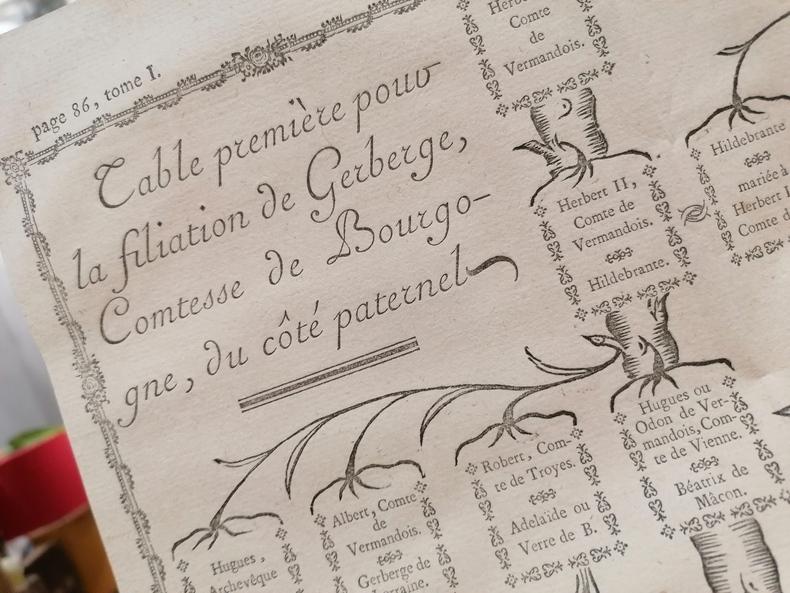 page 86, tome I.
Table première pour
la filiation de Gerberge,
Comtesse de Bourgo-
gne, du côté paternel
Comte
de
Vermandois.
Herbert II,
Comte de
Vermandois.
Hildebrante.
Hildebrante
mariée à
Herbert
Comte
Hugues ou
Odon de Ver-
mandois, Com-
te de Vienne.
Béatrix de
Mâcon.
Robert, Com-
te de Troyes.
Adelaïde ou
Verre de B.
Albert, Comte
de
Vermandois.
Gerberge de
Lorraine.
Hugues,
Archevêque